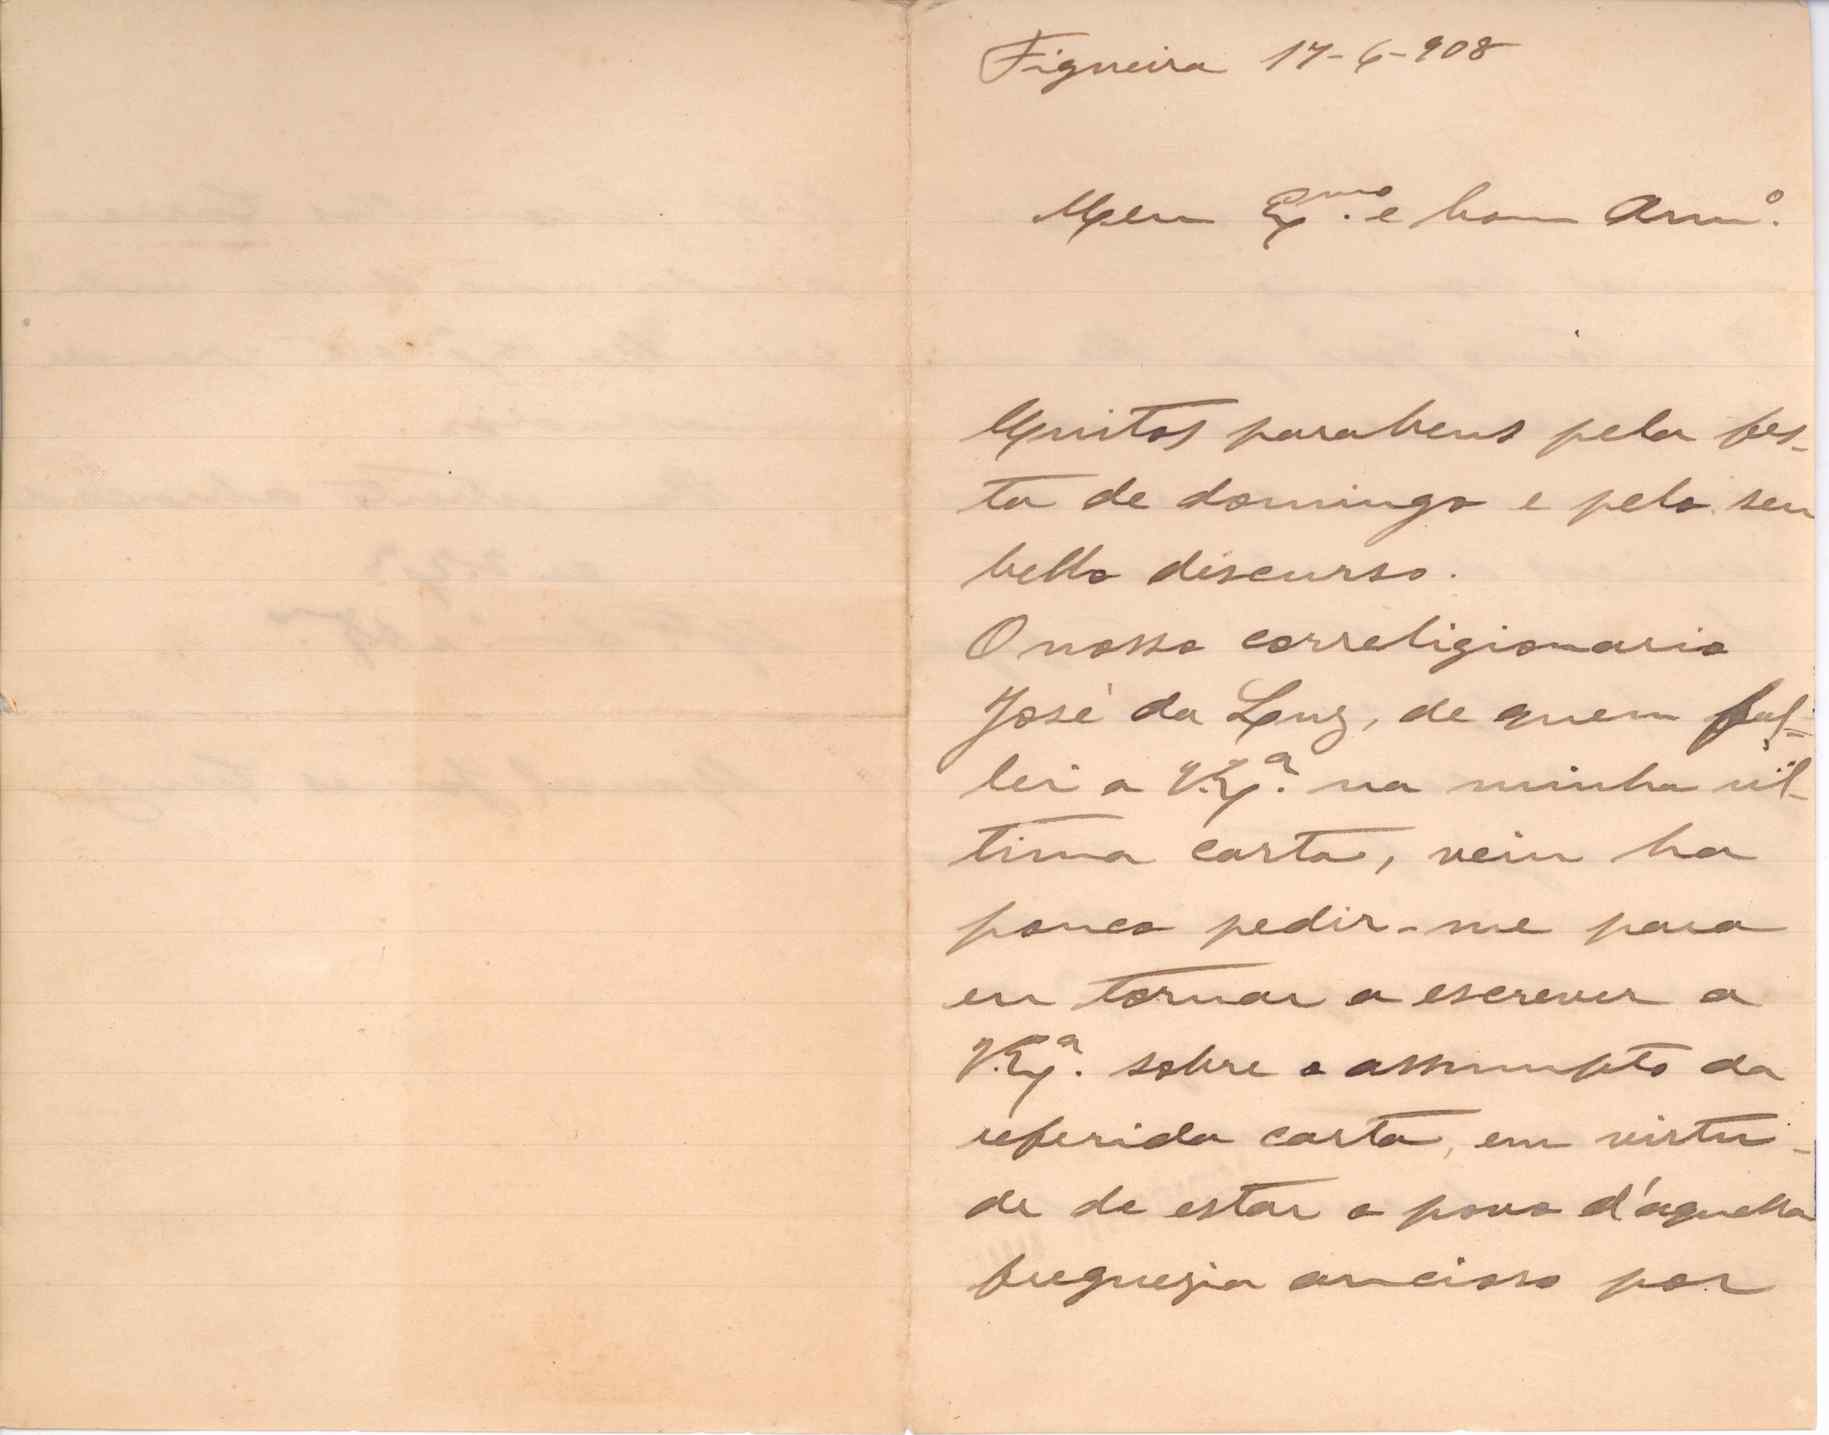 Figueira 17-6-908
Meu Ex.mo e bom Am.o
Muitos parabens pela fes-
ta de domingo e pelo seu
bello discurso.
O nosso correligionario
José da Luz, de quem fal-
lei a V. Ex.a na minha ul-
tima carta, veiu ha
pouco pedir-me para
eu tornar a escrever a
V. Ex.a sobre o assumpto da
referida carta, em virtu-
de de estar o povo d'aquella
freguezia ancioso por